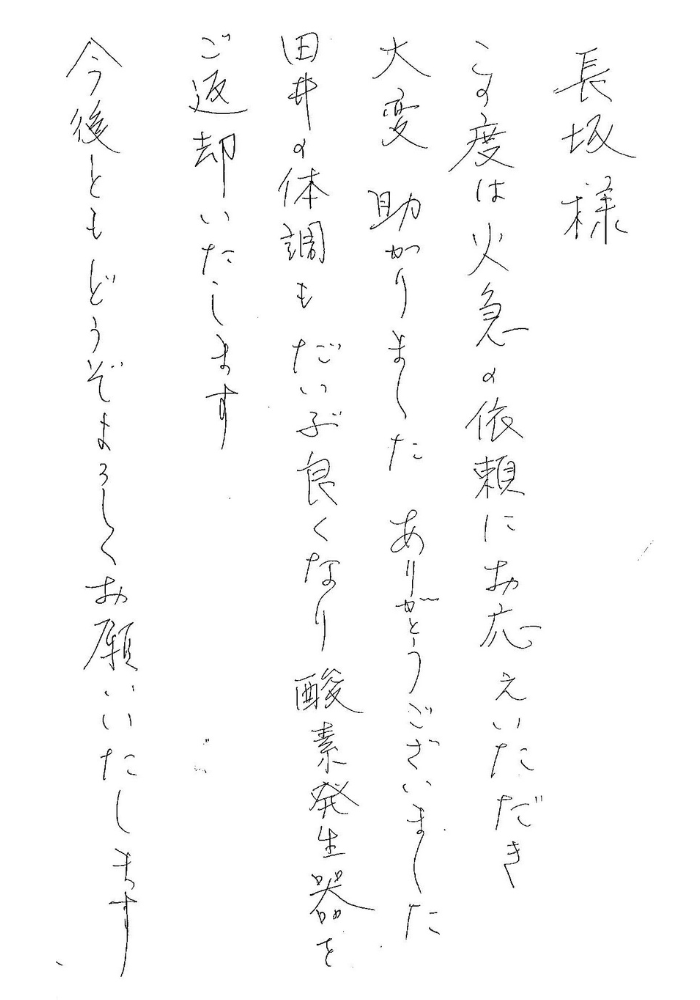 長坂様
この度は火急の依頼にお応えいただき
大変 助かりました ありがとうございました
田井の体調も だいぶ良くなり 酸素発生器を
ご返却いたします
今後とも どうぞよろしくお願いいたします